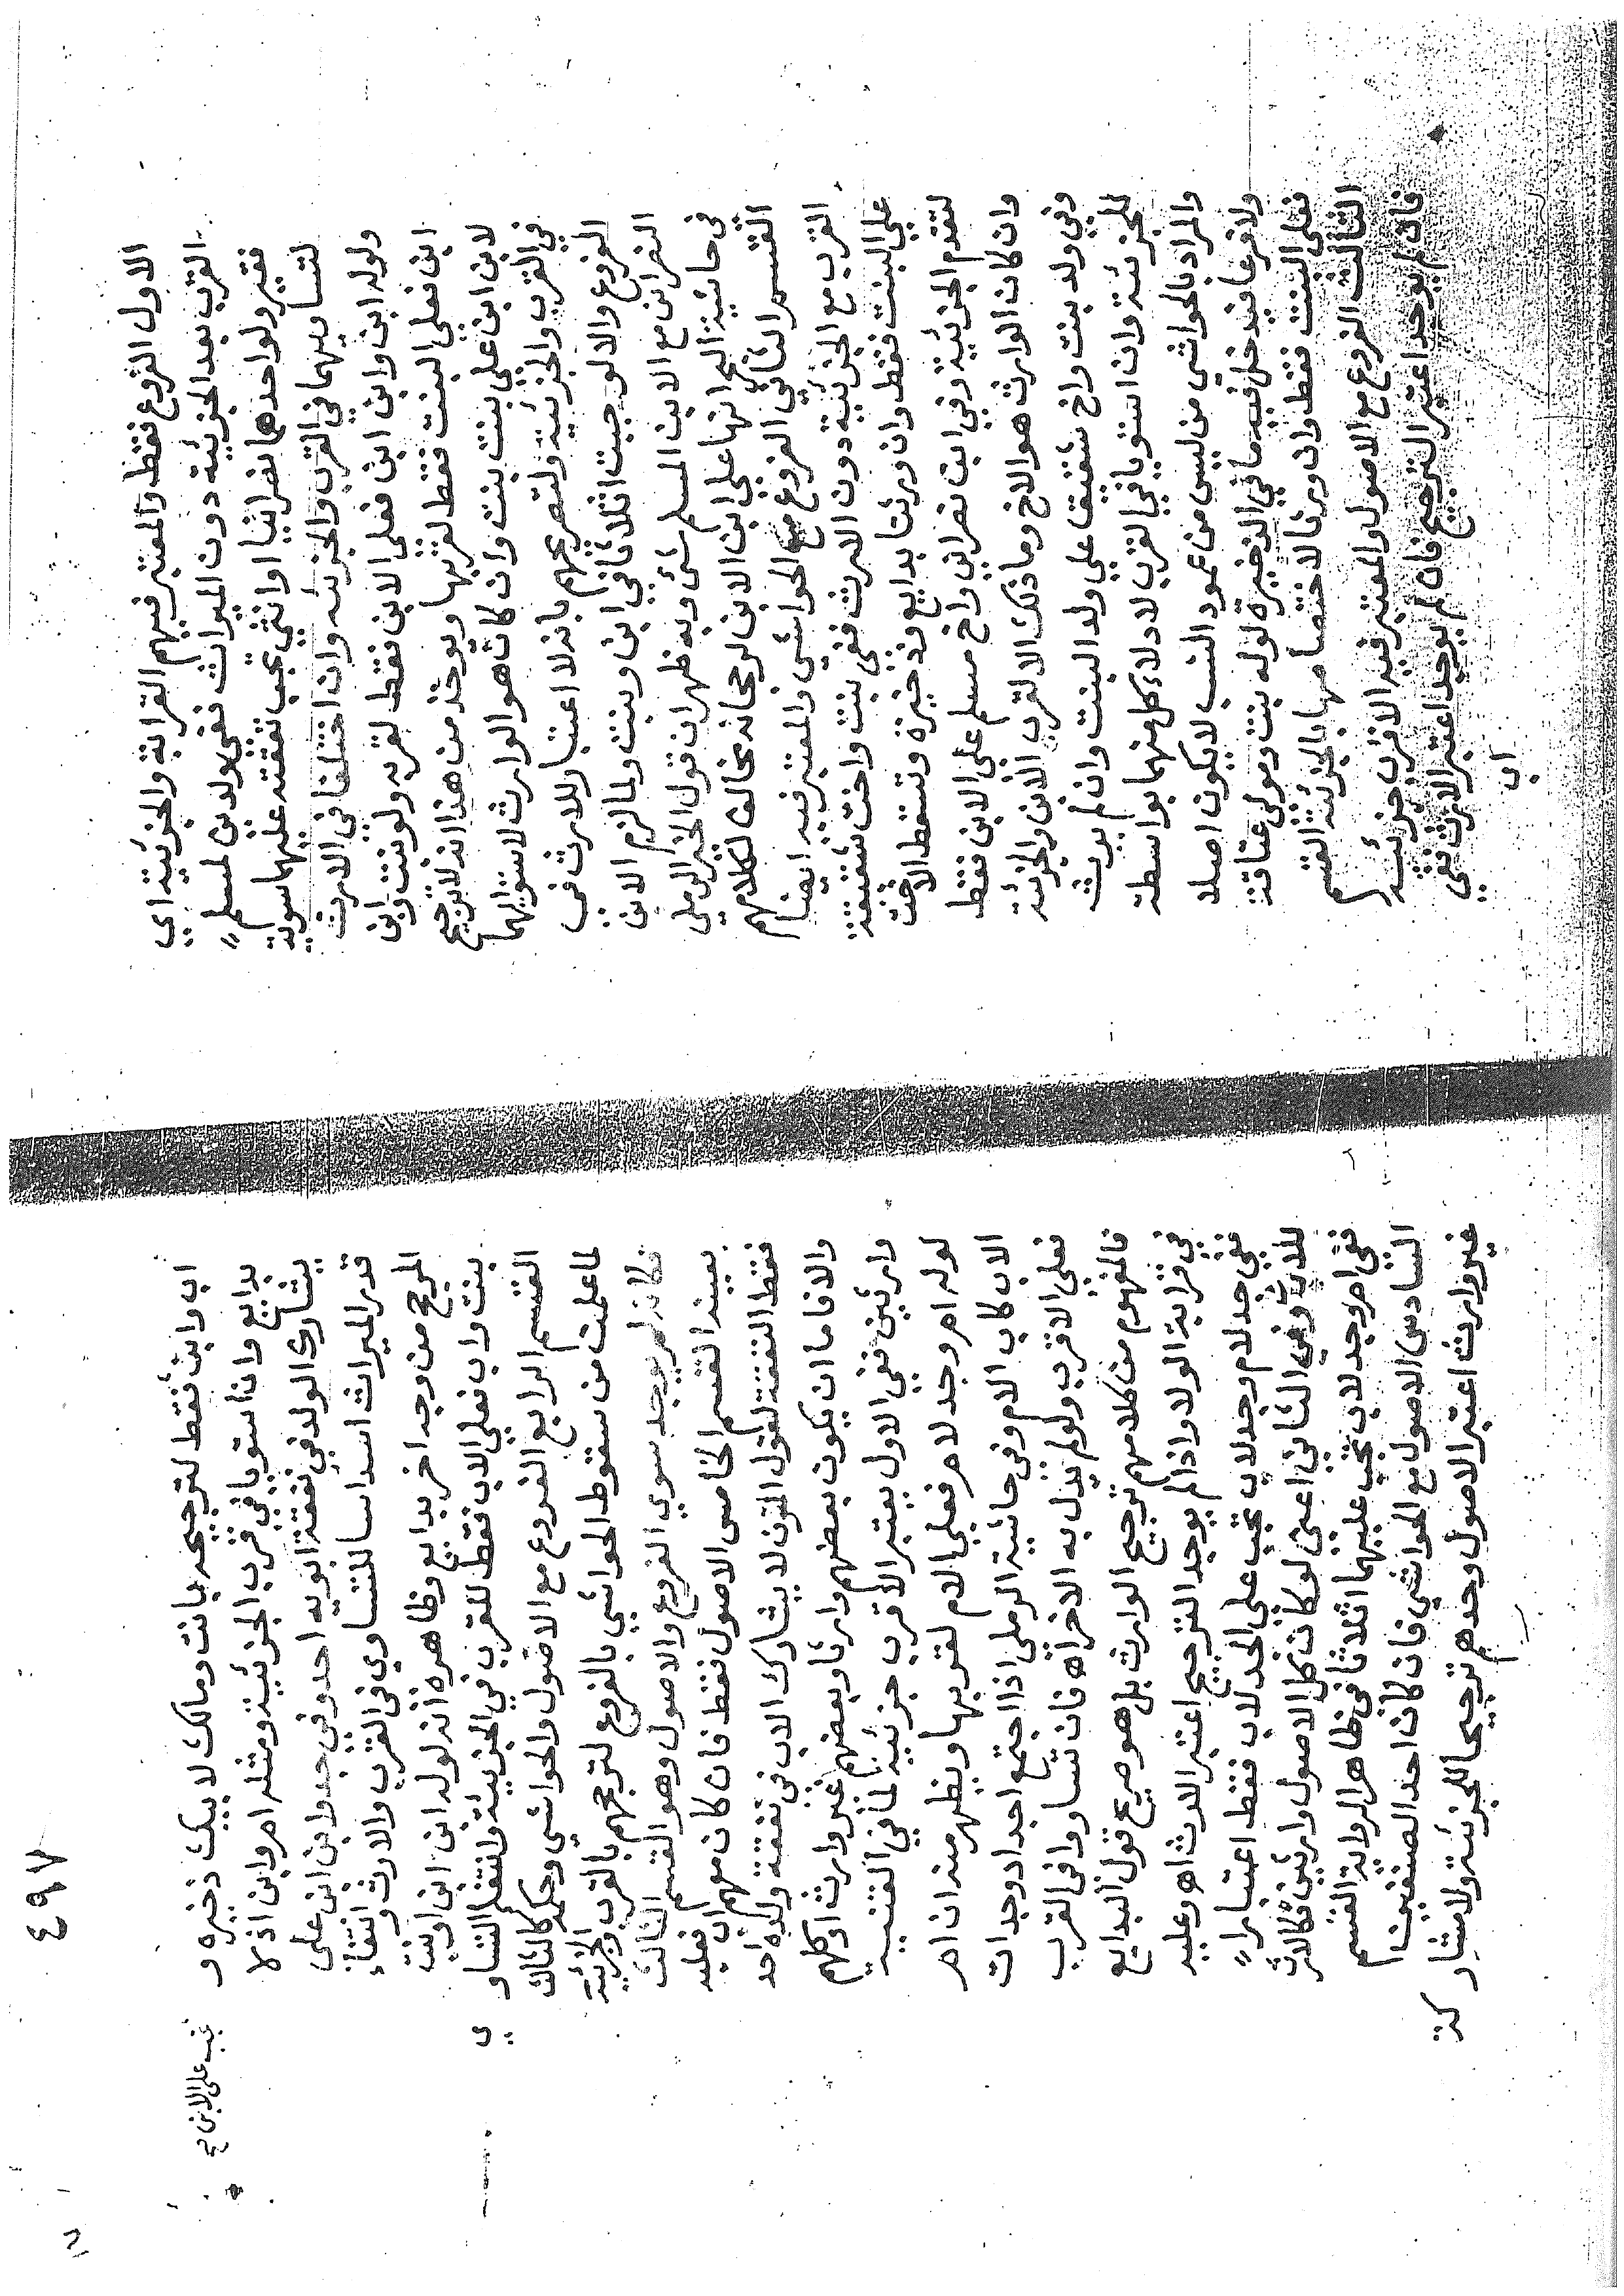 الاول الفروع فقط والمعتبر فيهم القرابة والجزئية اي
القرب بعد الجزئية دون الميراث ففي ولدين لمسلم
فقير ولو احدهما نصرانيا او انثي تجب نفقته عليهما سوية
لتساويهما في القرب والجزئية وان اختلفا في الارث
ولو له ابن وابن ابن فعلي الابن فقط لقربه ولو بنت وابن
ابن فعلي البنت فقط لقربها ويوخذ من هذا انه لا ترجيح
لابن ابن علي بنت بنت وان كان هو الوارث لاستوائهما
في القرب والجزئية ولتصريحهم بانه لا اعتبار للارث في
الفروع والا لوجبت اثلاثا في ابن وبنت ولما لزم الابن
النصراني مع الابن المسلم شئ وبه ظهر ان قول الخير الرملي
في حاشية البحر انها علي ابن الابن لرجحانه مخالف لكلامهم
القسم الثاني الفروع مع الحواشي والمعتبر فيه ايضا
القرب مع الجزئية دون الارث ففي بنت واخت شقيقة
علي البنت فقط وان ورثتا بدايع وذخيرة وتسقط الاخت
لتقدم الجزئية وفي ابن نصراني واخ مسلم علي الابن فقط
وان كان الوارث هو الاخ وما ذلك الا لقرب الابن والجزئية
وفي ولد بنت واخ شقيق علي ولد البنت وان لم يرث
للجزئية وان استويا في القرب لادلاء كل منهما بواسطة
والمراد بالحواشي من ليس من عمود النسب لا يكون اصلا
ولا فرعا فيدخل فيه ما في الذخيرة لو له بنت ومولي عتاقة
فعلي البنت فقط وان ورثا لاختصامها بالجزئية القسم
الثالث الفروع مع الاصول والمعتبر فيه الاقرب جزئية
فان لم يوجد اعتبر الترجيح فان لم يوجد اعتبر الارث ففي
اب
٤٩٧
اب وابن تجب علي الابن فقط لترجيحه بانت ومالك لابيك ذخيره و
بدايع وان استويا في قرب الجزئية ومثله ام وابن اذ لا
يشارك الولد في نفقة ابويه احد وفي جد وابن ابن علي
قدر الميراث اسداسا للتساوي في القرب والارث وانتفاء
المرجح من وجه اخر بدايع وظاهره انه لو له ابن ابن او بنت
بنت واب فعلي الاب فقط للقرب في الجزئية وانتفاء التساوي
القسم الرابع الفروع مع الاصول والحواشي وحكمه كالثالث
لما علمت من سقوط الحواشي بالفروع لترجحهم بالقرب والجزئية
فكانه لم يوجد سوي الفروع والاصول وهو القسم الثالث
بعينه القسم الخامس الاصول فقط فان كان معهم اب فعليه
فقط النفقة لقول المتون لا يشارك الاب في نفقة ولده احد
والا فاما ان يكون بعضهم وارثا وبعضهم غير وارث او كلهم
وارثين ففي الاول يعتبر الاقرب جزئية لما في القنية
لو له ام وجد لام فعلي الام لقربها ويظهر منه ان ام
الاب كاب الام وفي حاشية الرملي اذا اجتمع اجداد وجدات
فعلي الاقرب ولو لم يدل به الاخر اه فان تساووا في القرب
فالمفهوم من كلامهم ترجيح الوارث بل هو صريح قول البدايع
في قرابة الولاد اذا لم يوجد الترجيح اعتبر الارث اه وعليه
ففي جد لام وجد لاب تجب علي الجد لاب فقط اعتبارا
للارث وفي الثاني اعني لو كان كل الاصول وارثين فكالارث
ففي ام وجد لاب تجب عليهما اثلاثا في ظاهر الرواية القسم
السادس الاصول مع الحواشي فان كان احد الصنفين
غير وارث اعتبر الاصول وحدهم ترجيحا للجزئية ولا مشاركة